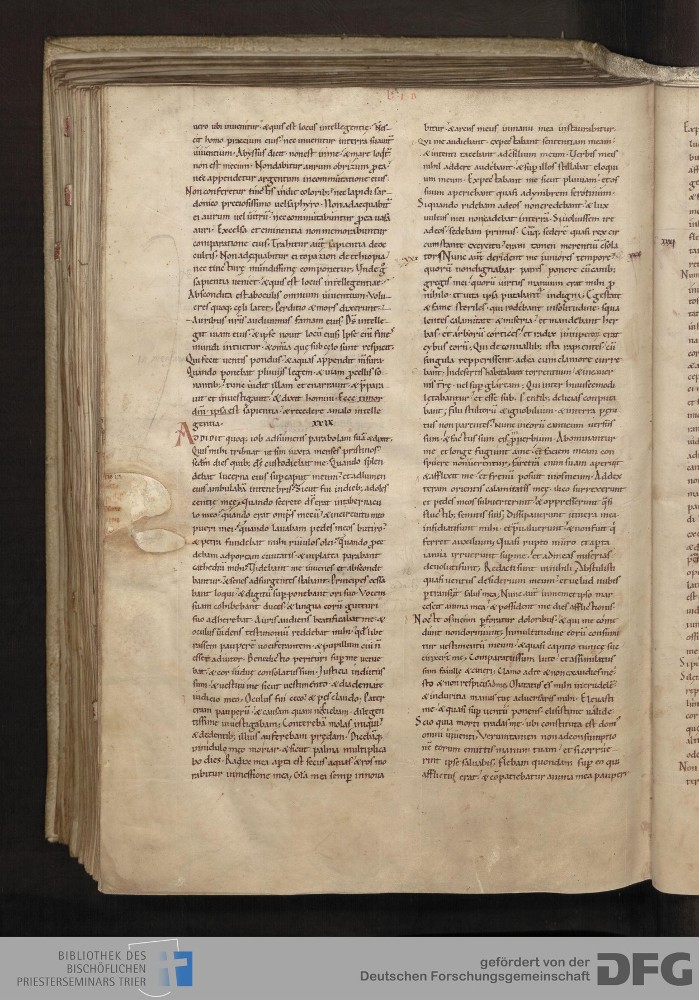 uero ubi inuenitur. & quis est locus intellegentie. Nes
cit homo precium eius. nec inuenitur in terra suauit
uiuentium. Abyssus dicit non est in me. & mare loqt.
non est mecum. Non dabitur aurum obrizum p ea.
nec appendetur argentum in commutatione eius.
Non conferetur tinctis indie colorib. nec lapidi sar
donico preciosissimo uel saphyro. Non adaequabit
ei aurum uel uitru. nec commutabuntur p ea uasa
auri. Excelsa et eminentia non memorabuntur
comparatione eius. Trahitur aut sapientia de oc
cultis. Non adequabitur ei topazion de ethiopia.
nec tincture mundissime componetur. Unde g
sapientia ueniet. & quis est locus intellegentiae.
Abscondita est ab oculis omnium uiuentium. Uolu
cres quoq. celi latet. Perditio & mors dixerunt.
Auribus nris audiuimus famam eius. Ds intelle
git uiam eius. & ipse nouit locu eius. Ipse eni fines
mundi intuetur. & omia que sub celo sunt respicit.
Qui fecit uentis pondus. & aquas appendit in msura.
Quando ponebat pluuiis legem. & uiam procellis so
nantib. tunc uidit illam et enarrauit. & ppara
uit et inuestigauit. & dixit homini. Ecce timor
dni ipsa est sapientia. & recedere a malo intelle
gentia. XXIX
Addidit quoq. iob adsumens parabolam sua. & dixit.
Quis mihi tribuat ut sim iuxta menses pristinos.
scdm dies quib. ds custodiebat me. Quando splen
debat lucerna eius sup caput meum. et ad lumen
eius ambulaba in tenebris. Sicut fui in dieb. adoles
centie mee. quando secreto ds erat in tabernacu
lo meo. quando erat omps mecu. & in circuitu meo
pueri mei. quando lauabam pedes meos butiro.
& petra fundebat mihi riuulos olei. quando pce
debam ad portam ciuitatis. & in platea parabant
cathedra mihi. Uidebant me iuuenes et absconde
bantur. & senes adsurgentes stabant. Principes cessa
bant loqui. & digitu sup ponebant ori suo. Uocem
suam cohibebant duces. & lingua eoru gutturi
suo adherebat. Auris audiens beatificabat me. &
oculus uidens testimoniu reddebat mihi. qd libe
rassem pauperem uociferantem. & pupillum cui n
esset adiutor. Benedictio perituri sup me uenie
bat. & cor uidue consolatus sum. Iusticia indutus
sum. & uestiui me sicut uestimento. & diademate
iudicio meo. Oculus fui ceco. & pes claudo. Pater
eram pauperu. & causam quam nesciebam. diligen
tissime inuestigabam. Conterebam molas iniqui.
& de dentib. illius auferebam predam. Dicebaq.
in nidulo meo moriar. & sicut palma multiplica
bo dies. Radix mea apta est secus aquas. & ros mo
rabitur in messione mea. Glia mea semp innoua
bitur. & arcus meus in manu mea instaurabitur.
Qui me audiebant. expectabant sententiam meam.
& intenti tacebant ad csilium meum. Uerbis meis
nihil addere audebant. & sup illos stillabat eloqui
um meum. Expectabant me sicut pluuiam. et os
suum aperiebant quasi ad ymbrem serotinum.
Si quando ridebam ad eos non credebant. & lux
uultus mei non cadebat in terra. Si uoluissem ire
ad eos. sedebam primus. Cuq. sederem quasi rex cir
cumstante exercitu. eram tamen merentiu csola
tor. Nunc aut derident me iuniores tempore.
quoru non dignabar patres ponere cu canib.
gregis mei. quoru uirtus manuum erat mihi p
nihilo. et uita ipsa putabant indigni. Egestate
& fame steriles. qui rodebant in solitudine. squa
lentes calamitate & miseria. et mandebant her
bas. et arboru cortices. et radix iuniperoru erat
cybus eoru. Qui de conuallib. ista rapientes. cu
singula repperissent. ad ea cum clamore curre
bant. In desertis habitabant torrentium. & in cauer
nis tre. uel sup glaream. Qui inter huiuscemodi
letabantur. et esse sub sentib. delicias computa
bant. filii stultoru & ignobilium. & in terra peni
tus non parentes. Nunc in eoru canticum uersus
sum. & factus sum eis puerbium. Abominantur
me. et longe fugiunt a me. et faciem meam con
spuere non uerentur. Faretra enim suam aperuit
& afflixit me. et frenu posuit in os meum. Ad dex
teram orientis calamitates mee ilico surrexerunt
et pedes meos subuerterunt. & oppresserunt qsi
fluctib. semitis suis. Dissipauerunt itinera mea.
insidiati sunt mihi. et pualuerunt. & non fuit q
ferret auxilium. Quasi rupto muro. et apta
ianua irruerunt sup me. et ad meas miserias
deuoluti sunt. Redactus sum in nihili. Abstulisti
quasi uentus desiderium meum. et uelud nubis
ptransiit salus mea. Nunc aut in memet ipso mar
cescit anima mea. & possident me dies afflictionis.
Nocte os meum pforatur doloribus. & qui me come
dunt non dormiunt. In multitudine eoru consumi
tur uestimentu meum. & quasi capitio tunice suc
cinxert me. Comparatus sum luto. et assimilatus
sum fauille & cineri. Clamo ad te & non exaudies me.
sto & non respicis ad me. Mutatus es mihi in crudele.
& in duritia manus tue aduersaris mihi. Eleuasti
me. & quasi sup uentu ponens elisisti me ualide.
Scio quia morti tradas me. ubi constituta est dom
omni uiuenti. Uerumtamen non ad consumptio
ne eorum emittis manum tuam. et si corrue
rint ipse saluabis. Flebam quondam sup eo qui
afflictus erat. & cpatiebatur anima mea pauperi
BIBLIOTHEK DES
BISCHÖFLICHEN
PRIESTERSEMINARS TRIER
gefördert von der
Deutschen Forschungsgemeinschaft
DFG